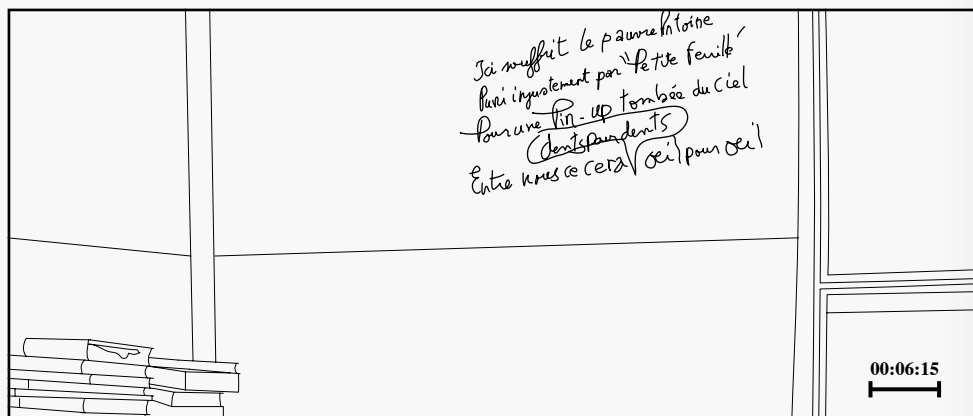 Ici souffrit le pauvre Antoine
Puni injustement par "Petite Feuille"
Pour une Pin-up tombée du Ciel
dents pour dents
Entre nous ce cera oeil pour oeil
00:06:15